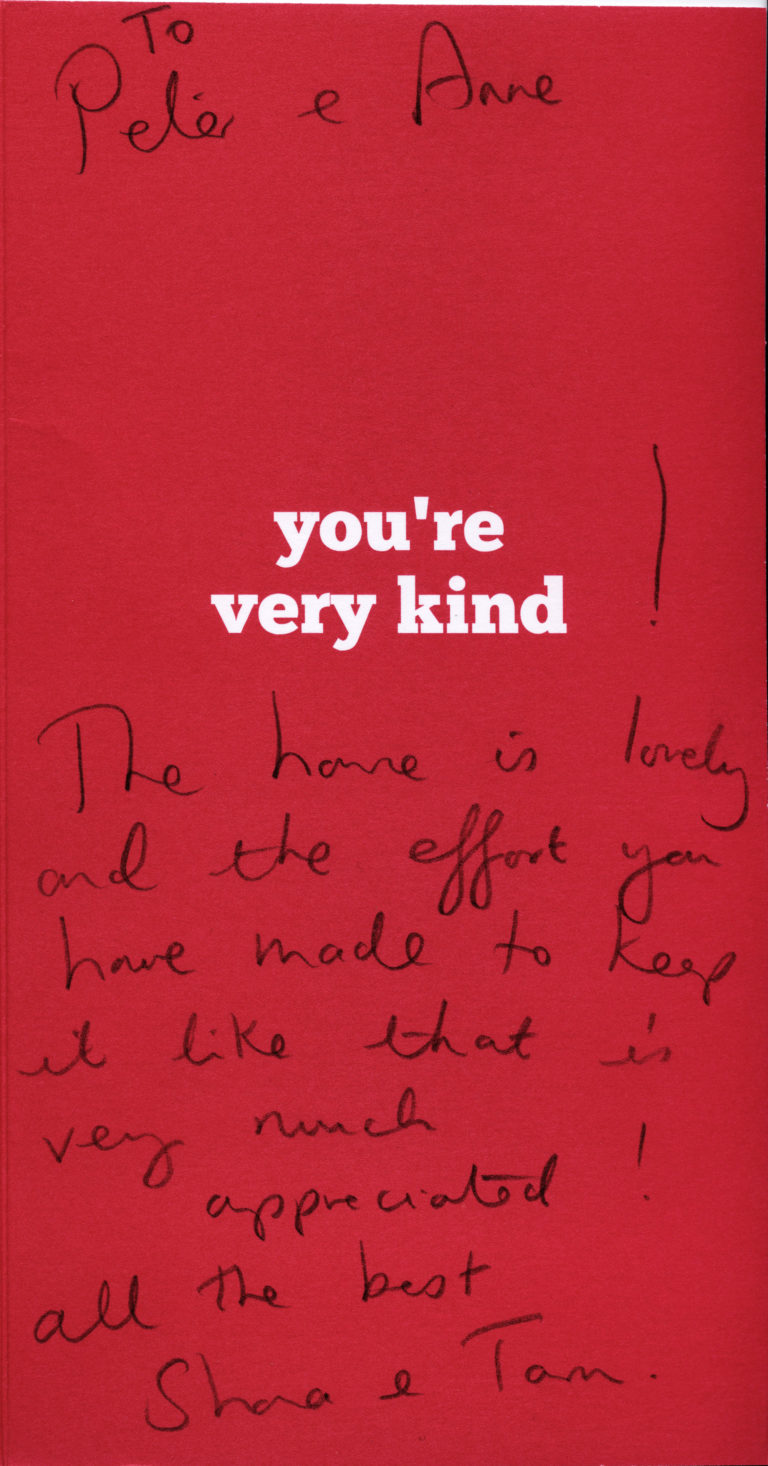 To
Peter e Anne
you're
very kind !
The home is lovely
and the effort you
have made to keep
it like that is
very much
appreciated !
all the best
e Tam.